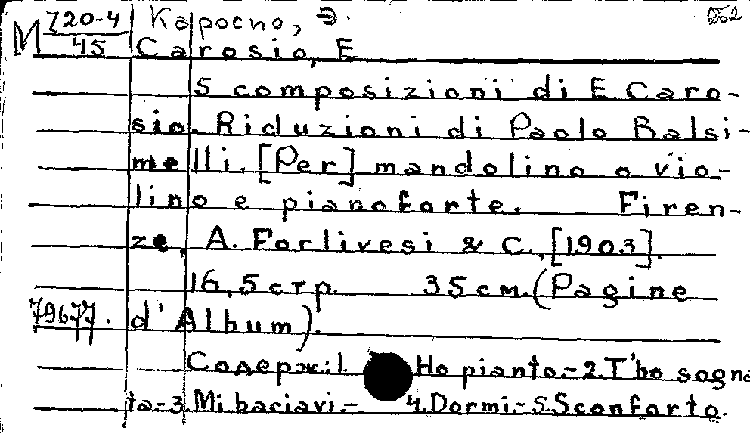 М 720-4/45 Каросио, Э.
Carosio, E
5 composizioni di E Caro-
sio. Riduzioni di Paolo Balsi-
melli. [Per] mandolino o vio-
lino e pianoforte. Firen-
ze, A. Forlivesi & C., [1903].
16,5 стр. 35 см. (Pagine
79677. d'Album).
Содерж: 1 Ho pianto.- 2. T'ho sogna
ta.- 3. Mi baciavi.- 4. Dormi.- 5. Sconforto.